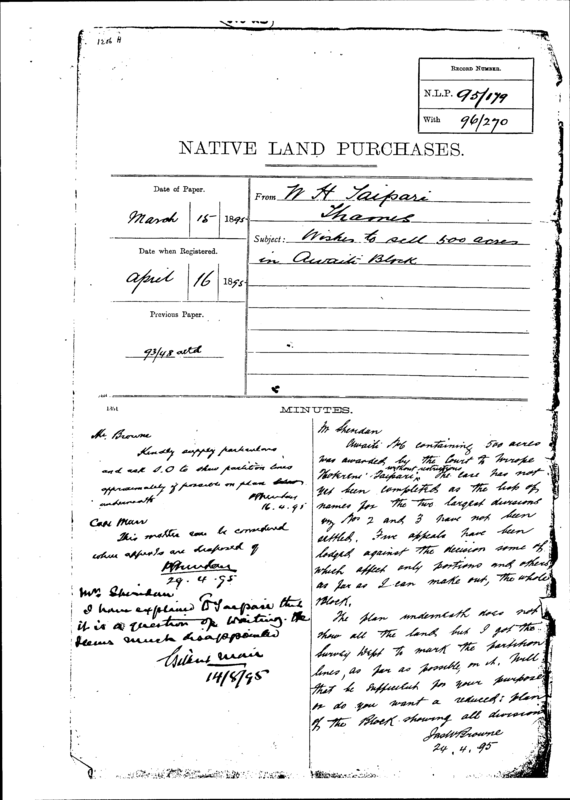 1216 H
RECORD NUMBER.
N.L.P. 95/179
With 96/270
NATIVE LAND PURCHASES.
Date of Paper.
March 15 1895
Date when Registered.
April 16 1895
Previous Paper.
93/48 attd
From W H Taipari
Thames
Subject: Wishes to sell 500 acres
in Awaiti Block
MINUTES.
Mr. Browne
Kindly supply particulars
and ask S.O to show partition lines
approximately if possible on plan
underneath
16.4.95
Capt Mair
This matter can be considered
when appeals are disposed of
PSheridan
29.4.95
Mr Sheridan.
I have explained to Taipari that
it is a question of waiting. He
seems much disappointed
Gilbert Mair
14/8/95
Mr Sheridan
Awaiti No 6 containing 500 acres
was awarded by the Court to Wirope
Hoterene Taipari without restrictions. The case has not
yet been completed as the lists of
names for the two largest divisions
viz Nos 2 and 3 have not been
settled. Five appeals have been
lodged against the decision some of
which affect only portions and others
as far as I can make out, the whole
Block.
The plan underneath does not
show all the land but I got the
Survey Dept to mark the partition
lines, as far as possible, on it. Will
that be sufficient for your purpose
or do you want a reduced plan
of the Block showing all divisions
Jas W Browne
24.4.95